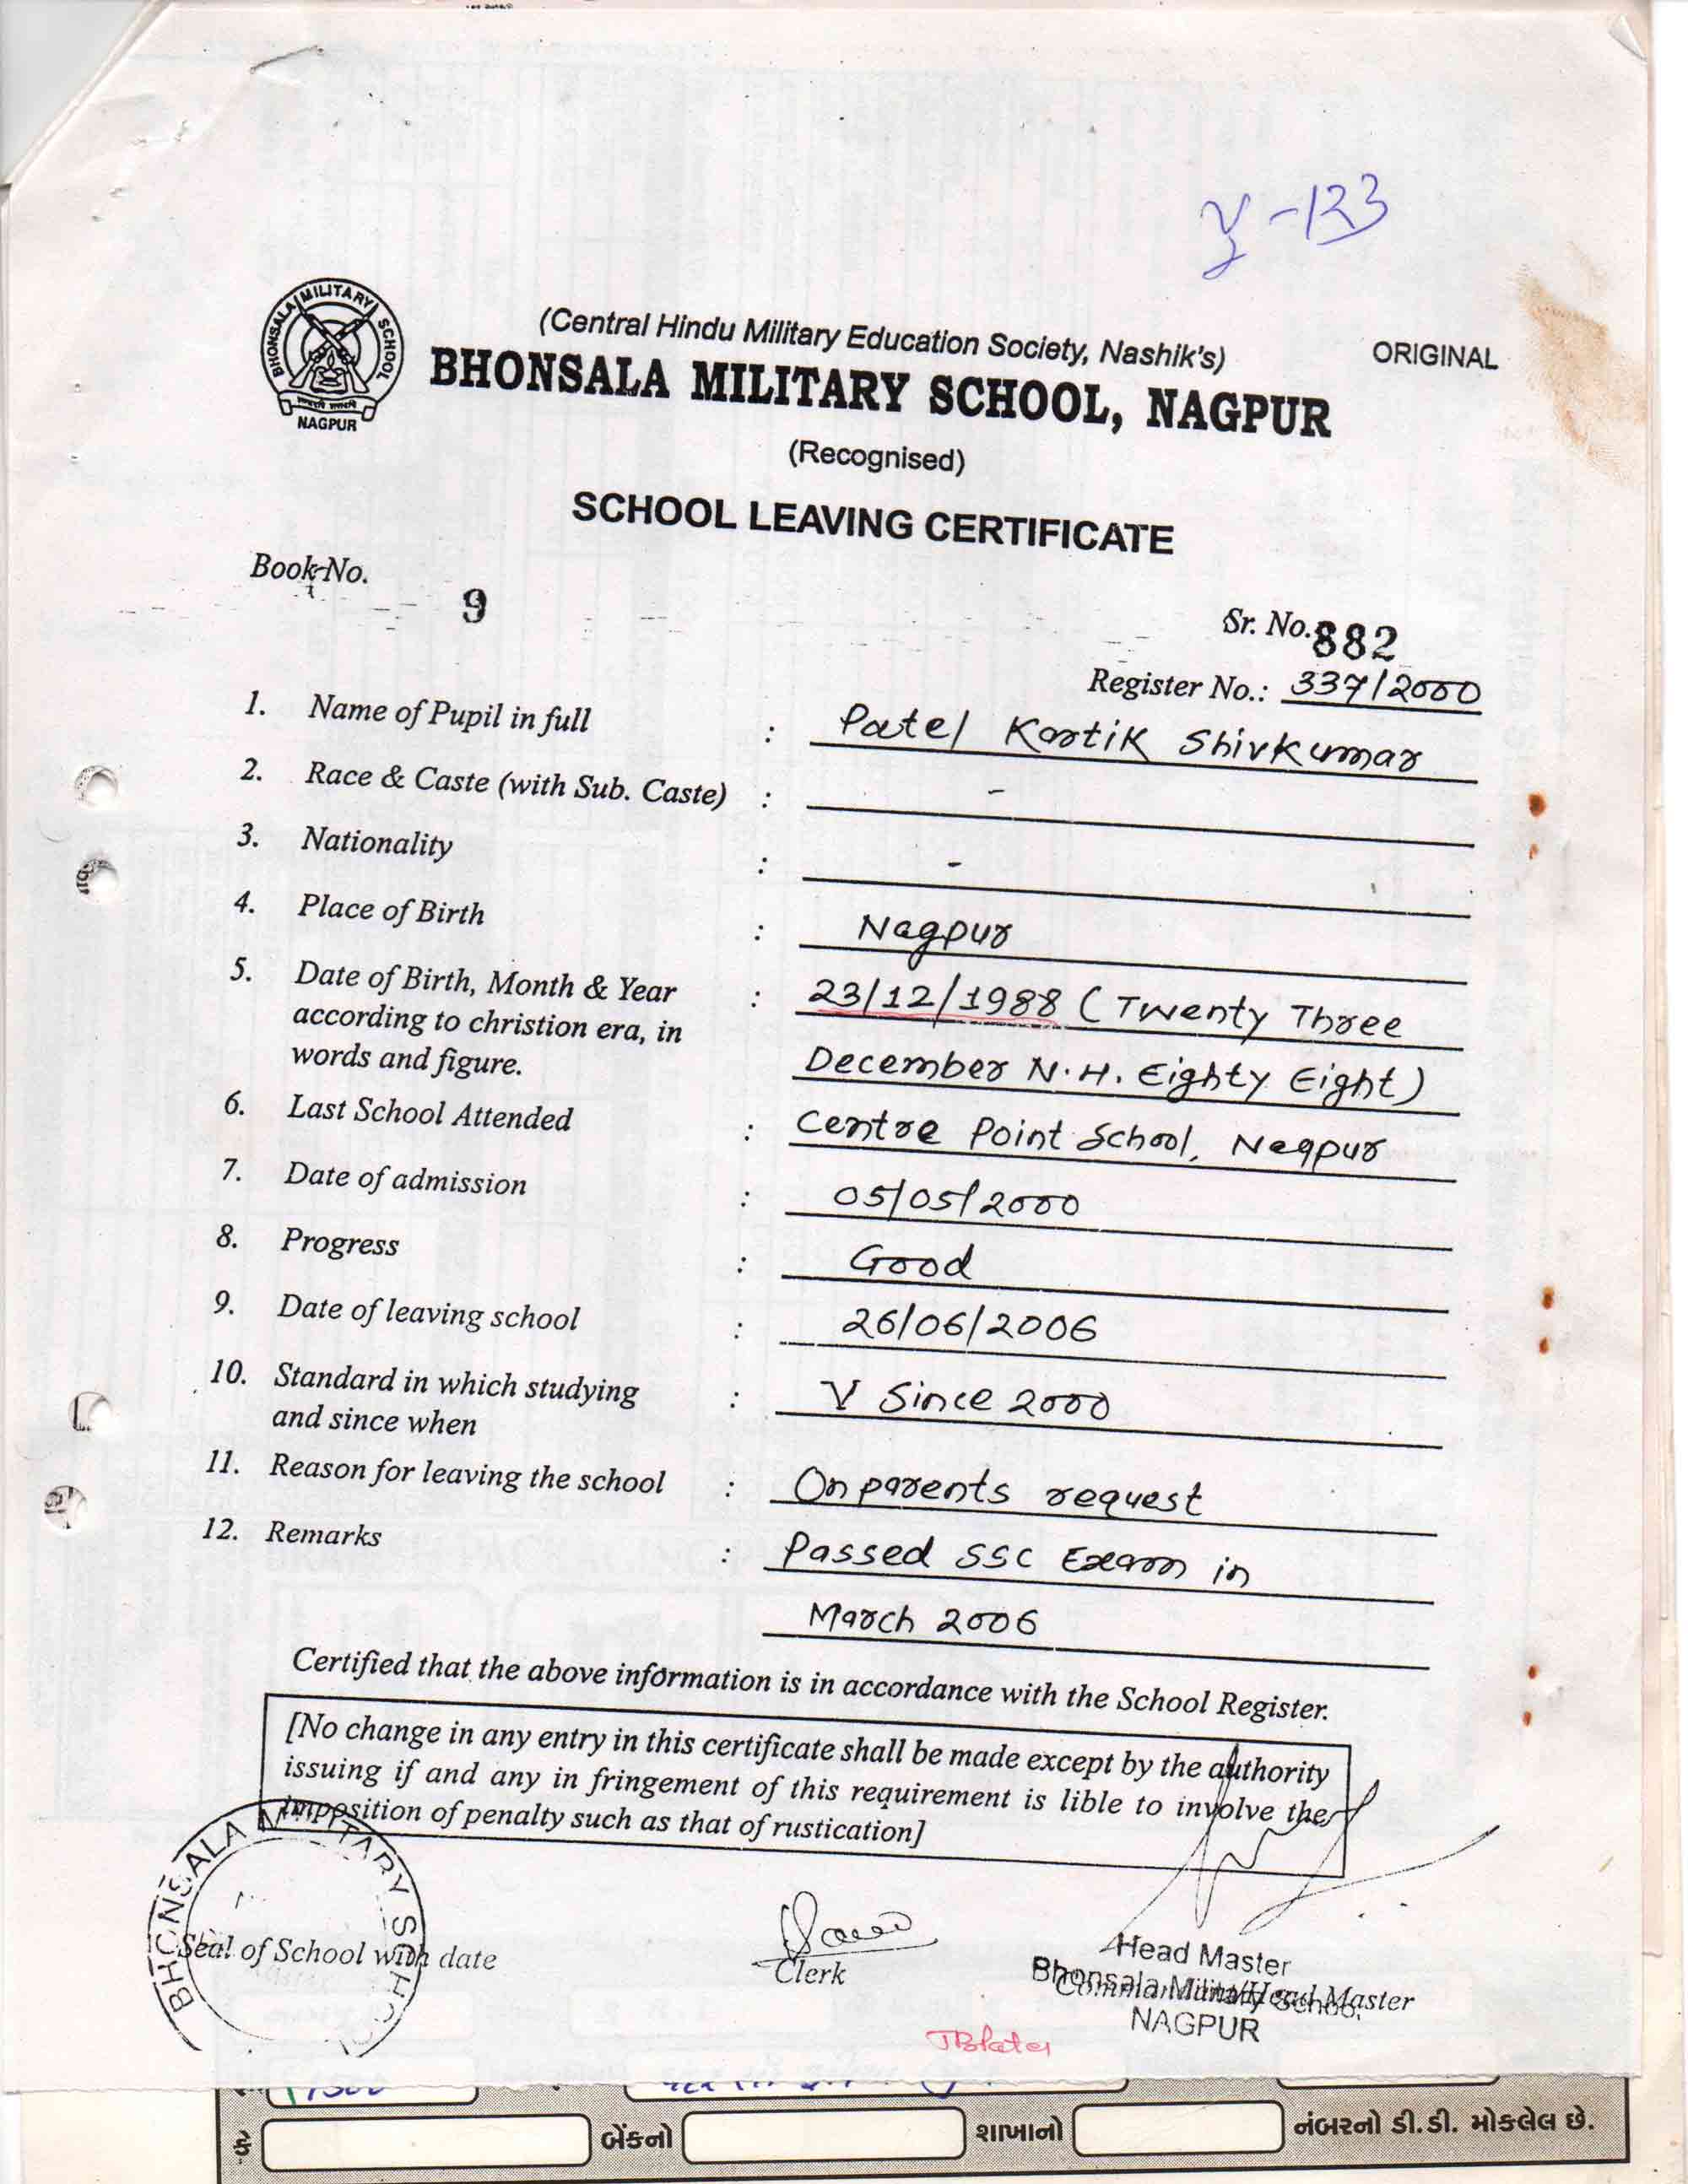 y-133
BHONSALA MILITARY SCHOOL
NAGPUR
(Central Hindu Military Education Society, Nashik's)
ORIGINAL
BHONSALA MILITARY SCHOOL, NAGPUR
(Recognised)
SCHOOL LEAVING CERTIFICATE
Book No. 9
Sr. No. 882
Register No.: 337/2000
1. Name of Pupil in full : Patel Kartik Shivkumar
2. Race & Caste (with Sub. Caste) : -
3. Nationality : -
4. Place of Birth : Nagpur
5. Date of Birth, Month & Year : 23/12/1988 (Twenty Three
according to christion era, in
words and figure. December N.H. Eighty Eight)
6. Last School Attended : Centre Point School, Nagpur
7. Date of admission : 05/05/2000
8. Progress : Good
9. Date of leaving school : 26/06/2006
10. Standard in which studying : V Since 2000
and since when
11. Reason for leaving the school : On parents request
12. Remarks : Passed SSC Exam in
March 2006
Certified that the above information is in accordance with the School Register.
[No change in any entry in this certificate shall be made except by the authority
issuing if and any in fringement of this requirement is lible to involve the
imposition of penalty such as that of rustication]
BHONSALA MILITARY SCHOOL
Seal of School with date
Clerk
Head Master
Bhonsala Military School,
Commandant/Head Master
NAGPUR
કે બેંકનો શાખાનો નંબરનો ડી.ડી. મોકલેલ છે.